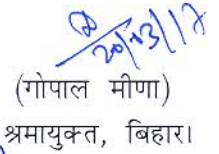 20/3/17
(गोपाल मीणा)
श्रमायुक्त, बिहार।